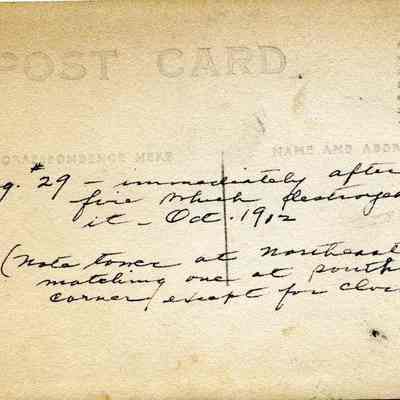 POST CARD
CORRESPONDENCE HERE
NAME AND ADDR
g. #29 - immediately after
fire which destroyed
it - Oct. 1912
(Note tower at northeast
matching one at south
corner, except for cloc